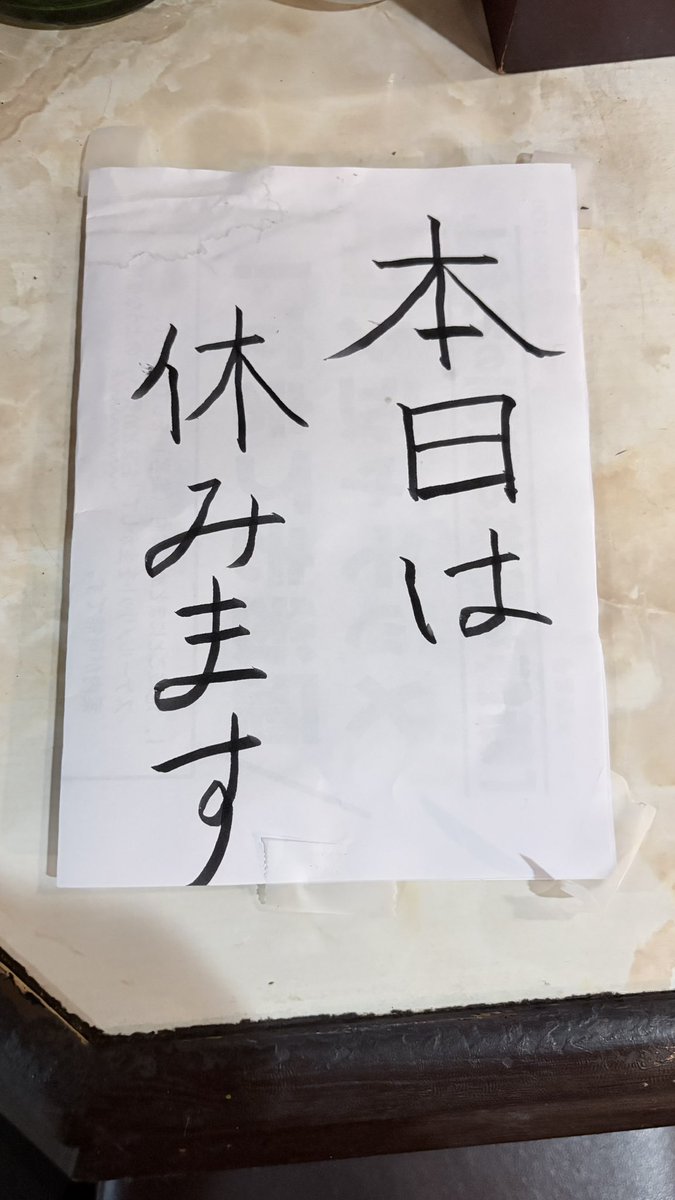 本日は
休みます